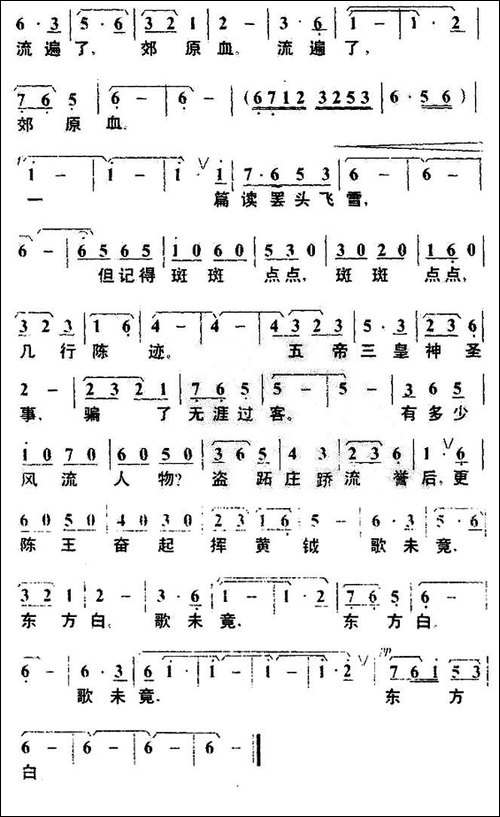 6·3 | 5·6 | 3 2 1 | 2 – | 3·6 | 1 – | 1·2 |
流遍了, 郊原血。流遍了,
7 6 5 | 6 – | 6 – | (6712 3253 | 6·56) |
郊原血.
1 – | 1 – | 1· 1 | 7·6 5 3 | 6 – | 6 – |
一 篇读罢头飞雪,
6 – | 6 5 6 5 | 1 0 6 0 | 5 3 0 | 3 0 2 0 | 1 6 0 |
但记得斑斑点点, 斑斑点点,
3 2 3 | 1 6 | 2 – | 2 – | 4 3 2 3 | 5·3 | 2 3 6 |
几行陈迹。五帝三皇神圣
2 – | 2 3 2 1 | 7 6 5 | 5 – | 5 – | 3 6 5 |
事, 骗了无涯过客。有多少
1 0 7 0 | 6 0 5 0 | 3 6 5 | 4 3 | 2 3 6 | 1· 6 |
风流人物? 盗跖庄蹻流誉后, 更
6 0 5 0 | 4 0 3 0 | 2 3 1 6 | 5 – | 6·3 | 5·6 |
陈王奋起挥黄钺 歌未竟.
3 2 1 | 2 – | 3·6 | 1 – | 1·2 | 7 6 5 | 6 – |
东方白。歌未竟. 东方白.
6 – | 6·3 | 6 1 – | 1 – | 1 – | 1·2 | pp 7 6 1 5 3 |
歌未竟. 东方
6 – | 6 – | 6 – | 6 – ‖
白